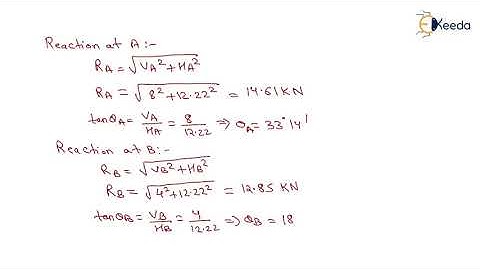 Ekeeda
Reaction at A :-
RA = √VA² + HA²
RA = √8² + 12.22² = 14.61 KN
tanθA = VA/HA = 8/12.22 ⇒ θA = 33° 14'
Reaction at B :-
RB = √VB² + HB²
RB = √4² + 12.22² = 12.85 KN
tanθB = VB/HB = 4/12.22 ⇒ θB = 18